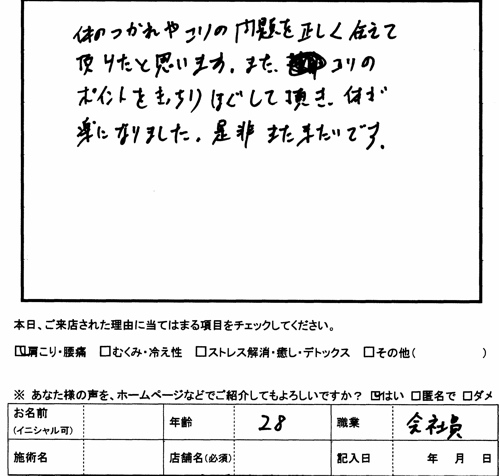 体のつかれやコリの問題を正しく伝えて
頂けたと思います。また、コリの
ポイントをきっちりほぐして頂き、体が
楽になりました。是非また来たいです。
本日、ご来店された理由に当てはまる項目をチェックしてください。
☑肩こり・腰痛 □むくみ・冷え性 □ストレス解消・癒し・デトックス □その他( )
※ あなた様の声を、ホームページなどでご紹介してもよろしいですか? ☑はい □匿名で □ダメ
お名前 (イニシャル可) 年齢 28 職業 会社員
施術名 店舗名(必須) 記入日 年 月 日